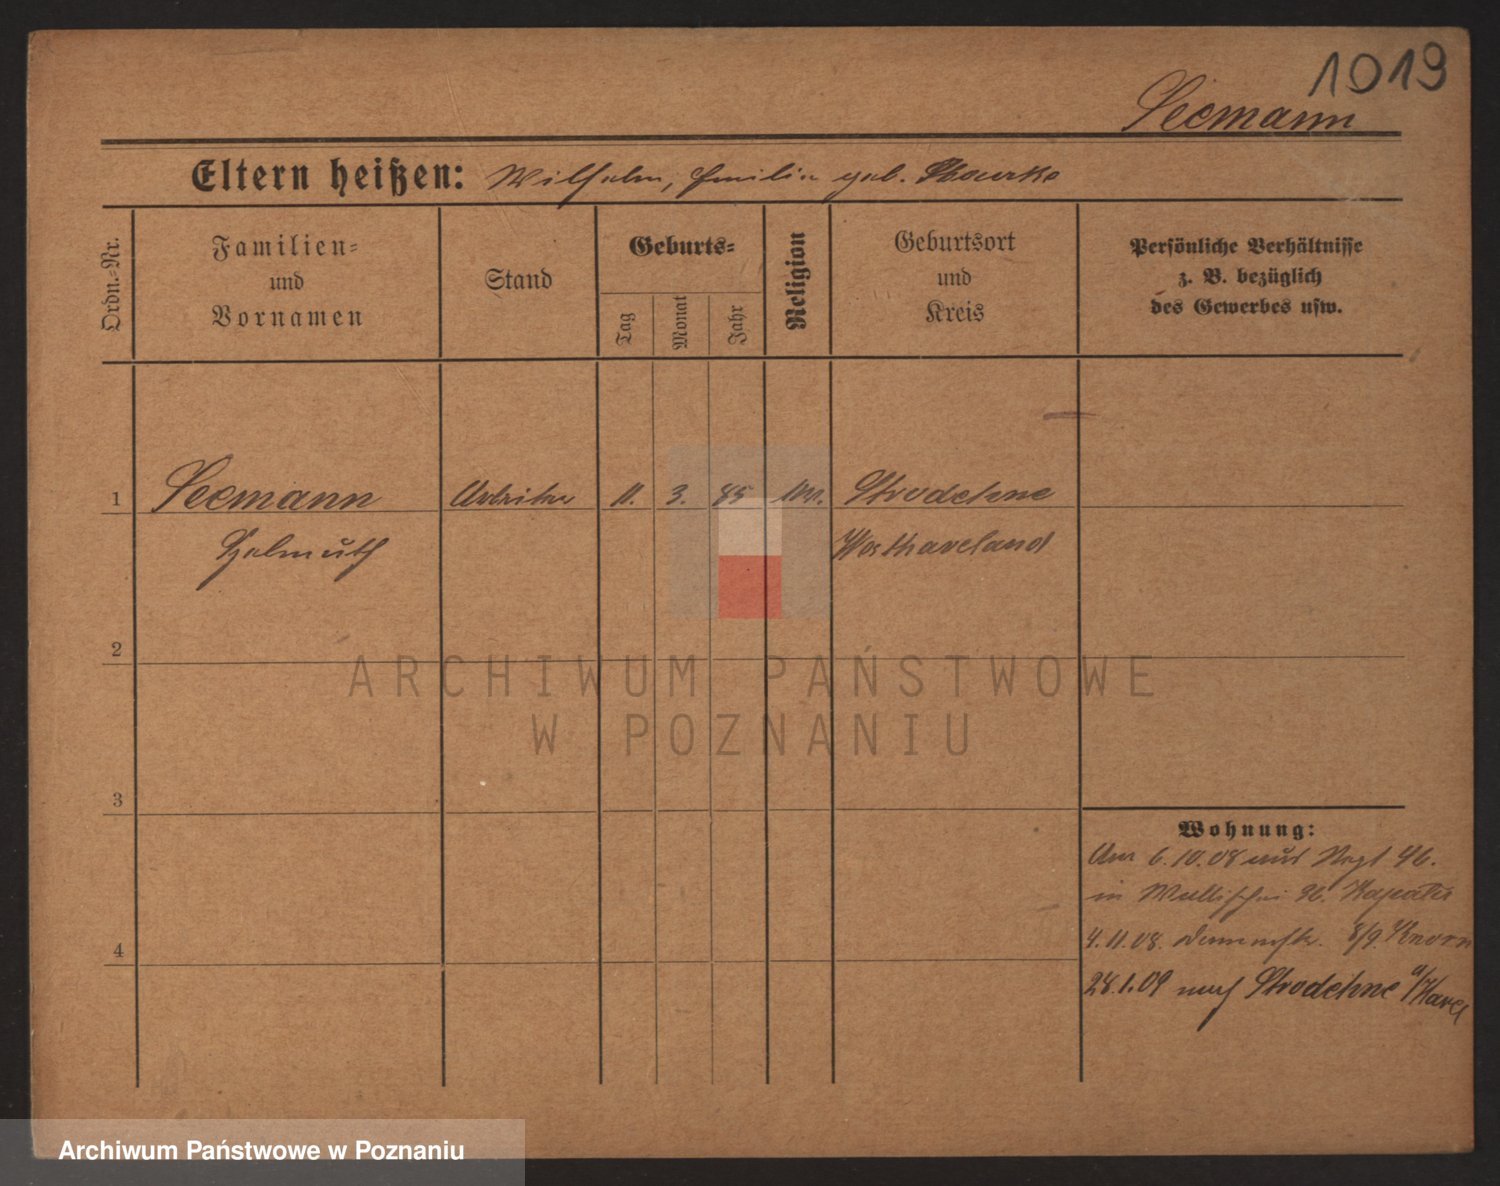 1019
Seemann
Eltern heißen: Wilhelm, Emilie geb.
Ordn.-Nr.
Familien-
und
Vornamen
Stand
Geburts-
Tag
Monat
Jahr
Religion
Geburtsort
und
Kreis
Persönliche Verhältnisse
z. B. bezüglich
des Gewerbes usw.
1 Seemann Arbeiter 11. 3. 85 Strodehne
Helmuth Westhaveland
2
3
4
Wohnung:
Am 6.10.08 aus Regt 46.
in Wallischei
4.11.08.
28.1.09 nach Strodehne a/Havel
ARCHIWUM PAŃSTWOWE
W POZNANIU
Archiwum Państwowe w Poznaniu